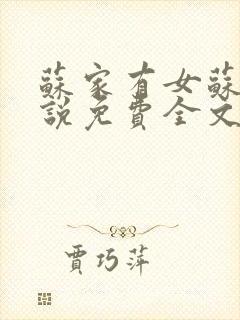 蘇家有女蘇
說免費全文
賈巧萍